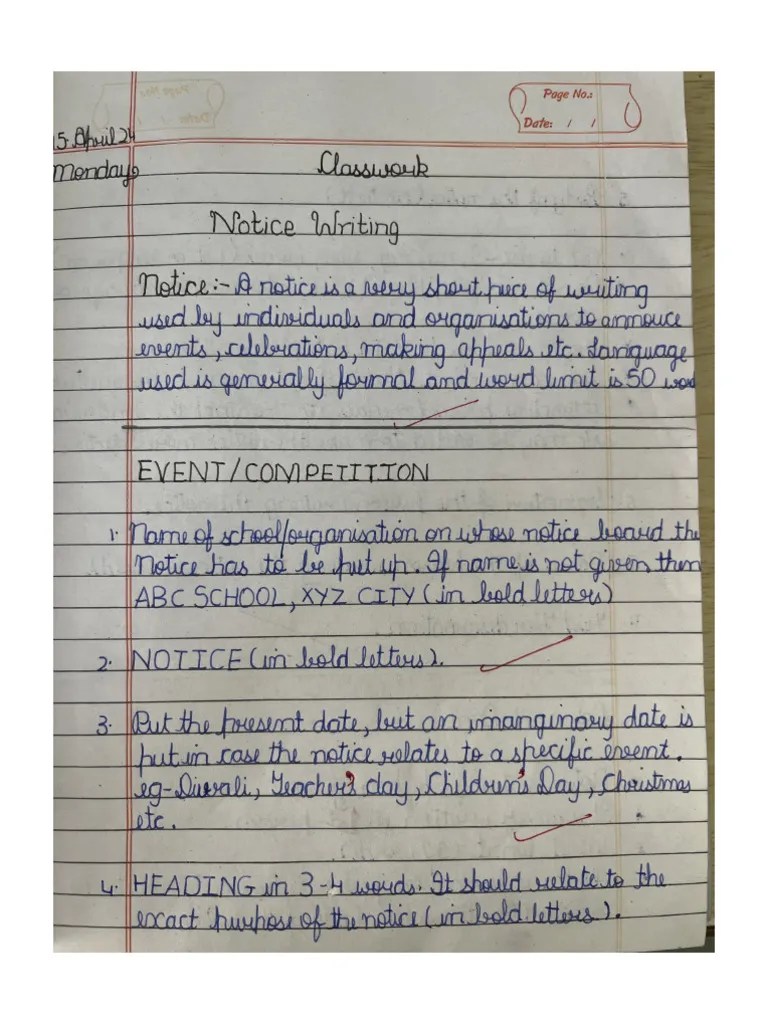 Page No.:
Date: / /
15 April 24
Monday
Classwork
Notice Writing
Notice:- A notice is a very short piece of writing
used by individuals and organisations to annouce
events, celebrations, making appeals etc. Language
used is generally formal and word limit is 50 word
EVENT/COMPETITION
1. Name of school/organisation on whose notice board the
Notice has to be put up. If name is not given then
ABC SCHOOL, XYZ CITY (in bold letters)
2. NOTICE (in bold letters).
3. Put the present date, but an imanginary date is
put in case the notice relates to a specific event.
eg- Diwali, Teacher's day, Children's Day, Christmas
etc.
4. HEADING in 3-4 words. It should relate to the
exact purpose of the notice (in bold letters).